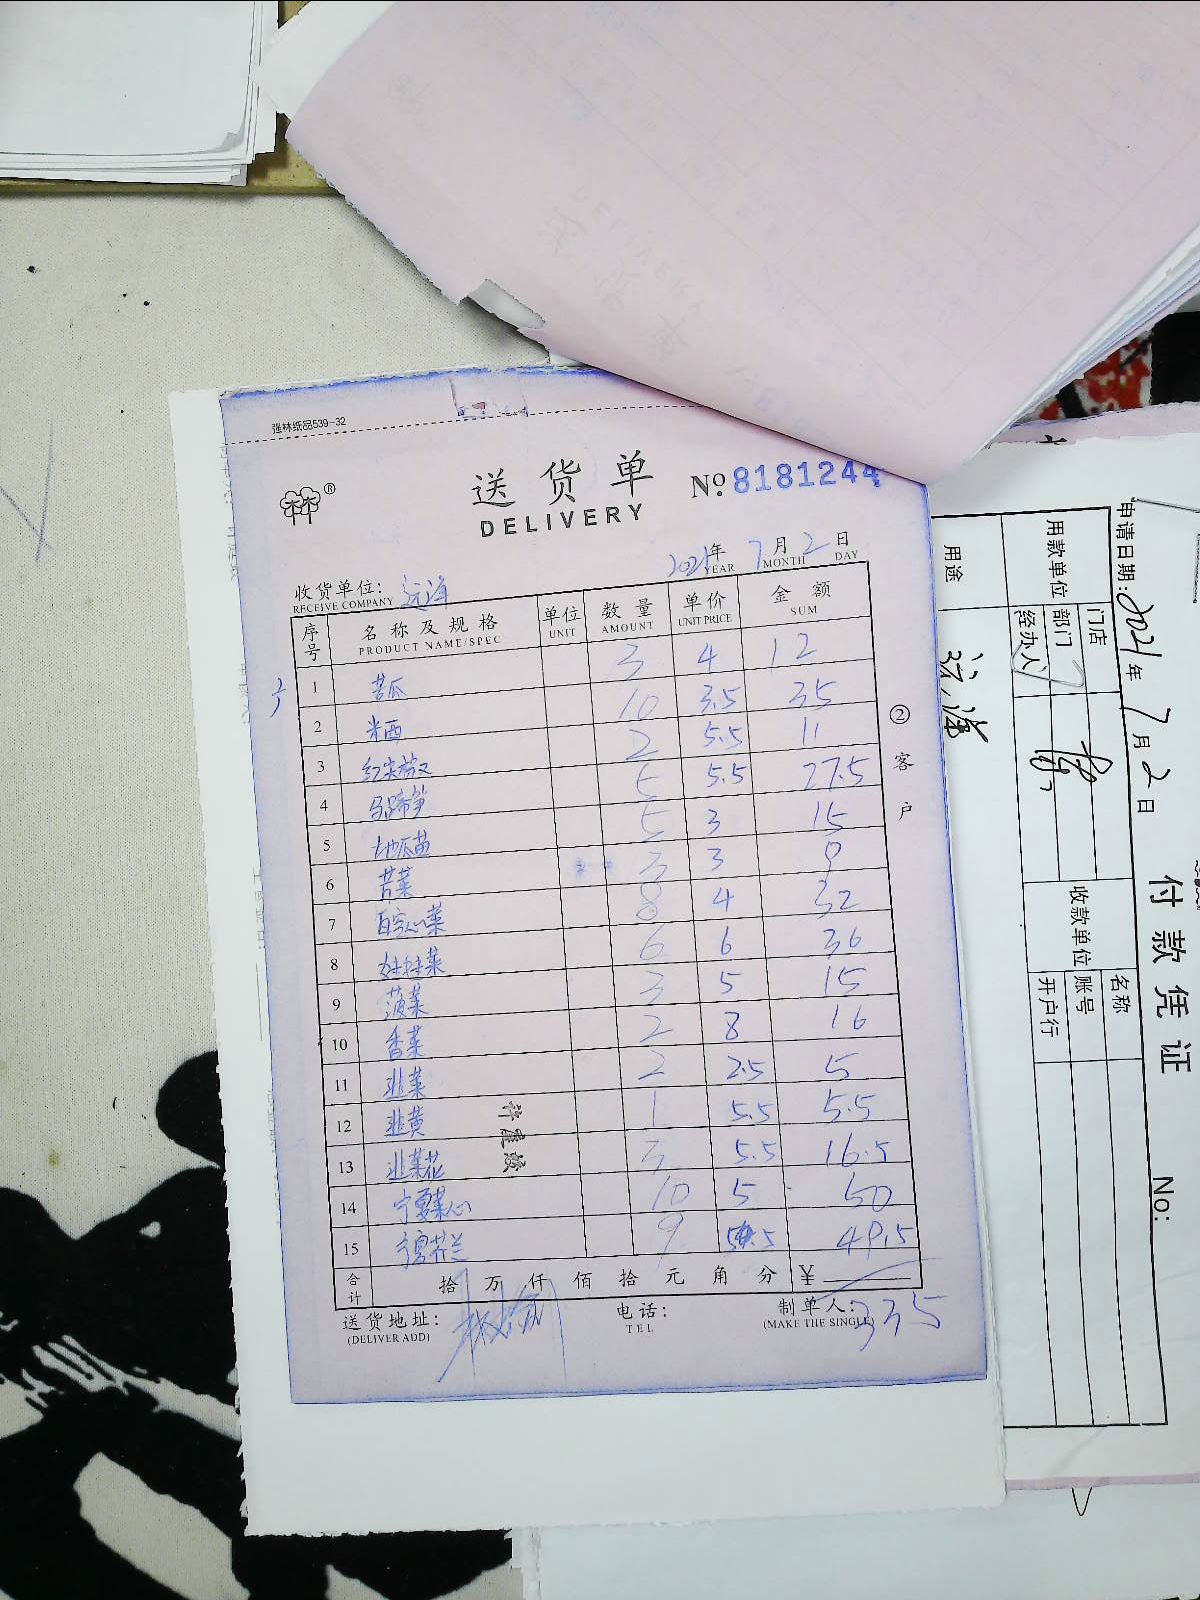 强林纸品539-32
®
送货单
№ 8181244
DELIVERY
2021年 7月 2日
YEAR MONTH DAY
收货单位: 远海
RECEIVE COMPANY
序号 名称及规格 单位 数量 单价 金额
PRODUCT NAME/SPEC UNIT AMOUNT UNIT PRICE SUM
1 苦瓜 3 4 12
2 米西 10 3.5 35
3 2 5.5 11
4 马蹄笋 5 5.5 27.5
5 地瓜苗 5 3 15
6 芥菜 3 3 9
7 8 4 32
8 妹妹菜 6 6 36
9 菠菜 3 5 15
10 香菜 2 8 16
11 韭菜 2 2.5 5
12 韭黄 1 5.5 5.5
13 韭菜花 3 5.5 16.5
14 宁夏菜心 10 5 50
15 宁夏芥兰 9 5.5 49.5
合计 拾 万 仟 佰 拾 元 角 分 ¥
送货地址: 电话: 制单人:
(DELIVER ADD) TEL (MAKE THE SINGLE)
335
② 客户
付款凭证 No:
申请日期: 2021年 7月 2日
用款单位 门店
部门
经办人
收款单位 名称
账号
开户行
用途 远海